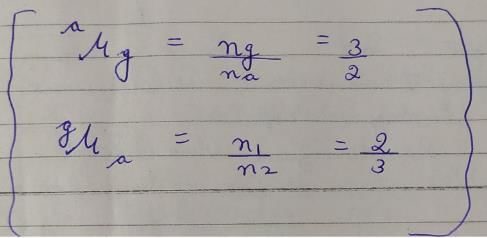 ᵃμ_g = n_g/n_a = 3/2
ᵍμ_a = n₁/n₂ = 2/3